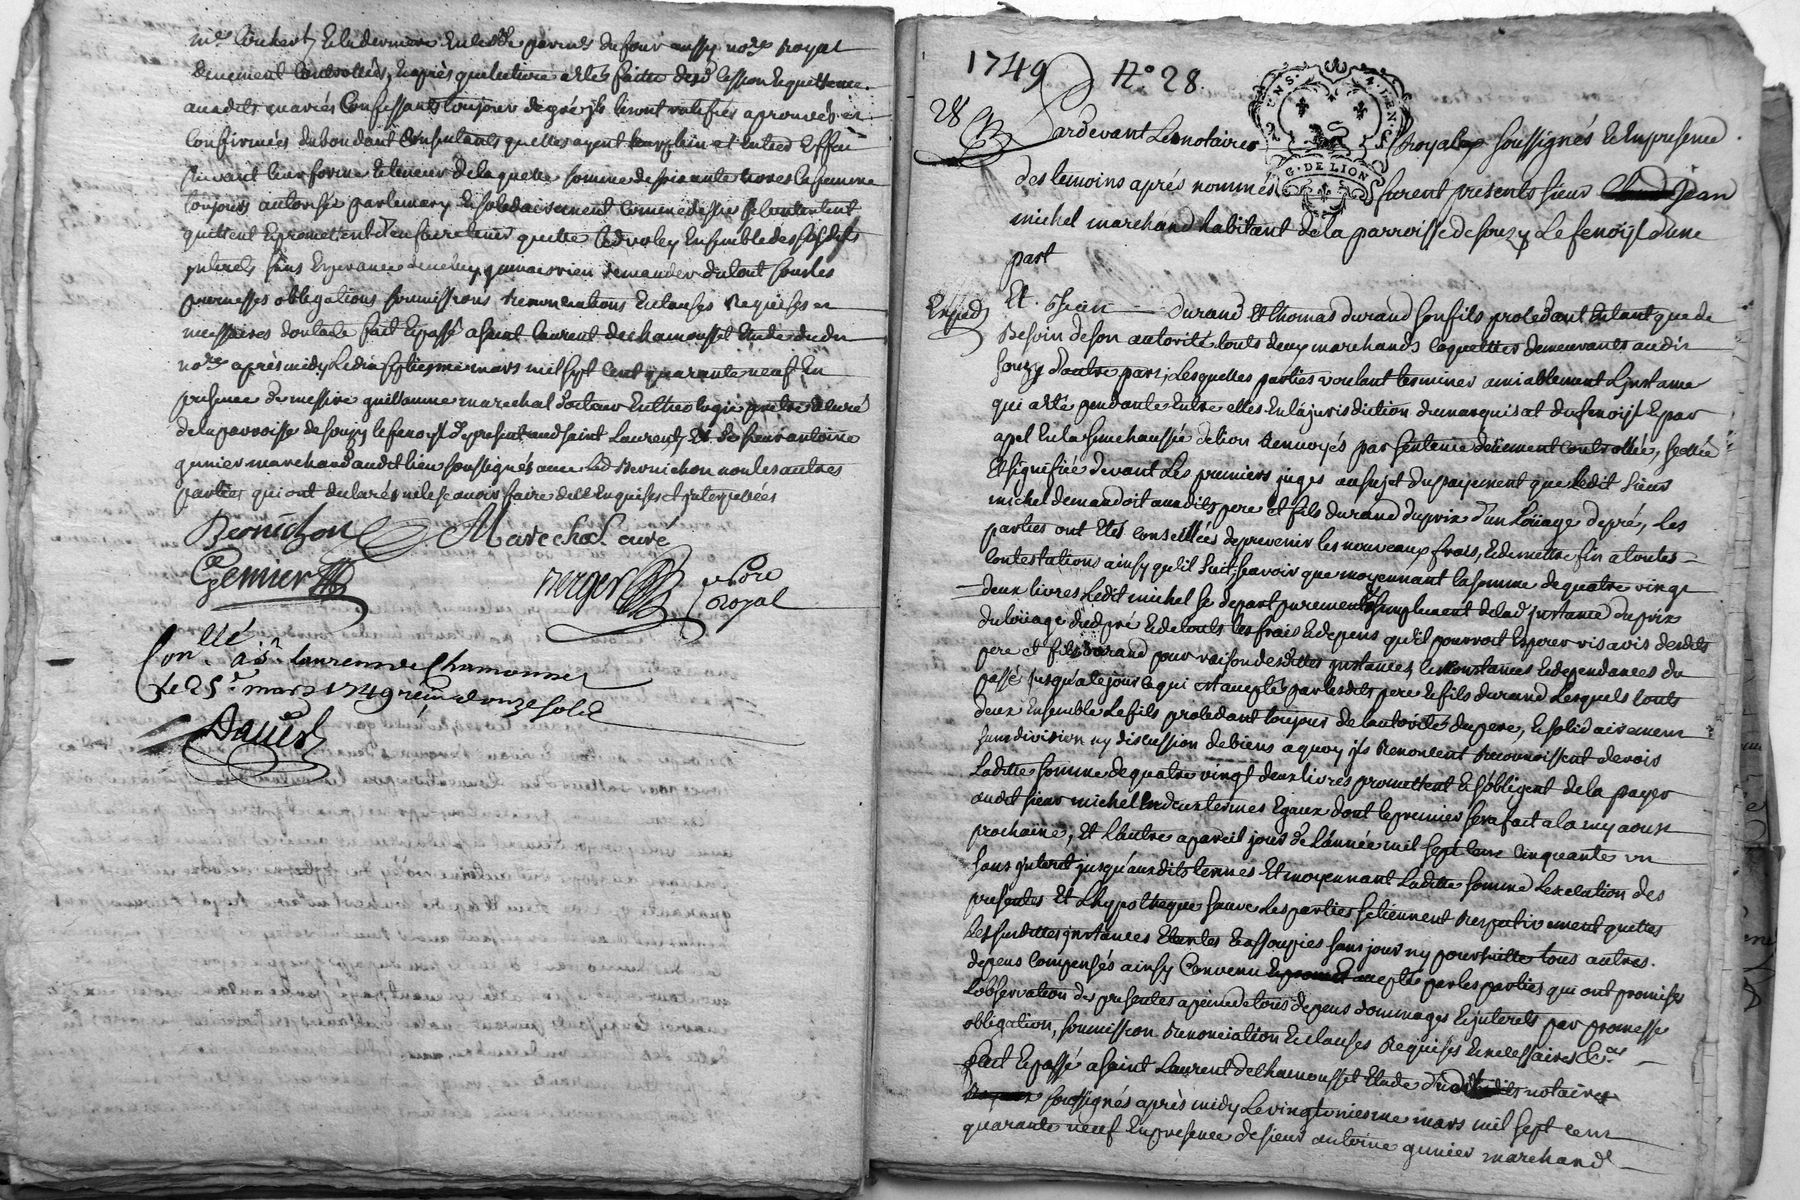 me Couhert, Et la derniere En les de parents du four aussy nore royal
deuement Controllés, Et après que lecture a Eté faitte desd cession Et quittance
auxdits mariés Confessants toujours de gré, ils les ont ratifiés aprouvés et
confirmées du bon dont Consentants quelles ayent leur plein et Entier Effet
suivant leur forme Et teneur de laquelle somme de soixante livres la femme
toujours autorisée par le mary Et solidairement Comme dessus se Contentent
quittent Et promettent d'en faire tenir quitte led voley Ensemble des susdits
jnterets sans Esperance den rien jamais rien demander du tout sous les
promesses obligations soumissions renonciations Et clauses Requises et
necessaires dont acte fait Et passé a saint Laurent de chamousset Etude dudit
nore après midy Le dix septieme mars mil sept cent quarante neuf En
presence de messire guillaume marechal docteur En theologie prêtre Et curé
de la parroisse de souzy le fenoyl de present aud saint Laurent, Et de sieur antoine
genier marchand audit lieu soussignés avec led Bernichon non les autres
parties qui ont declarés ne le scavoir faire de ce Enquises Et jnterpellées
Bernichon Marechal curé
Genier
Berger nore royal
Conllé a St laurent de Chamousset
Le 25e mars 1749 reçu douze sols
David
1749 No 28.
28
GENS. LYON.
G. DE LION
Pardevant Les notaires royaux soussignés Et En presence
des temoins aprés nommés furent presents sieur Jean
michel marchand habitant de la parroisse de souzy Le fenoyl d'une
part
Exped
Et Sieur Durand Et thomas durand son fils procedant En tant que de
Besoin de son autorité touts deux marchands laquelliers demeurants audit
souzy d'autre part, Lesquelles parties voulant terminer amiablement L'jnstance
qui a Eté pendante Entre elles En la jurisdiction du marquisat du fenoyl Et par
apel En la senechaussée de lion Renvoyés par sentence deüement Controllée, scellée
Et signifiée devant Les premiers juges au sujet du payement que ledit sieur
michel demandoit auxdits pere et fils durand du prix d'un Loüage de pré, Les
parties ont Etés Conseillées de prevenir les nouveaux frais, Et de mettre fin a toutes
Contestations ainsy qu'il suit, scavoir que moyennant la somme de quatre vingt
deux livres Ledit michel se depart purement Et simplement de lad jnstance du prix
du loüage dudpré Et de touts les frais Et depens qu'il pourroit Esperer vis avis desdits
pere et fils durand pour raison desdittes jnstances, Circonstances Et dependances du
passé jusqu'a ce jour Ce qui Est accepté par lesdits pere Et fils durand Lesquels touts
deux Ensemble Le fils procedant toujours de l'autorité du pere, Et solidairement
sans division ny discussion de biens a quoy jls Renoncent Reconnoissent devoir
Laditte somme de quatre vingt deux livres promettent Et s'obligent de la payer
audit sieur michel En deux termes Egaux dont le premier sera fait a la my aoust
prochaine, Et L'autre a pareil jour de L'année mil sept cent cinquante un
sans jnteret jusqu'auxdits termes Et moyennant Laditte somme L'execution des
presentes Et L'hypotheque sauve Les parties se tiennent Respectivement quittes
Les susdittes jnstances Eteintes Et assoupies sans jour ny poursuitte tous autres
depens Compensés ainsy Convenu accepté par les parties qui ont promises
L'observation des presentes a peine de tous depens dommages Et jnterets par promesse
obligation, soumission Renonciation Et clauses Requises Et necessaires &a
fait Et passé a saint Laurent de chamousset Etude dudit notaires
soussignés après midy Le vingtunieme mars mil sept cent
quarante neuf En presence de sieur antoine genier marchand